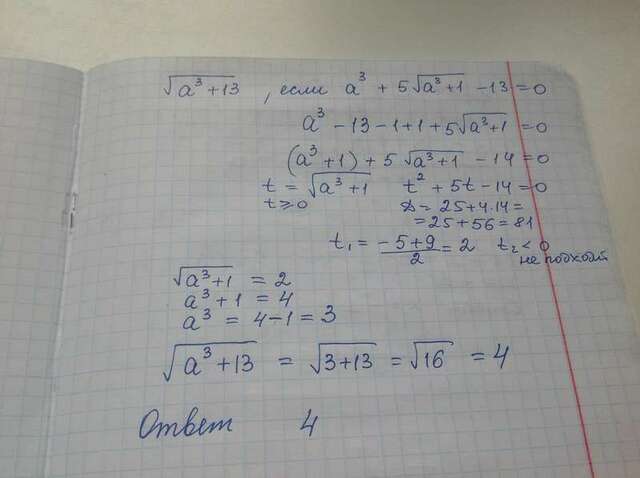 √(a³+13) , если a³ + 5√(a³+1) - 13 = 0
a³ - 13 - 1 + 1 + 5√(a³+1) = 0
(a³+1) + 5√(a³+1) - 14 = 0
t = √(a³+1) t² + 5t - 14 = 0
t ≥ 0 D = 25 + 4·14 =
= 25 + 56 = 81
t₁ = (-5+9)/2 = 2 t₂ < 0
не подходит
√(a³+1) = 2
a³ + 1 = 4
a³ = 4 - 1 = 3
√(a³+13) = √(3+13) = √16 = 4
Ответ 4